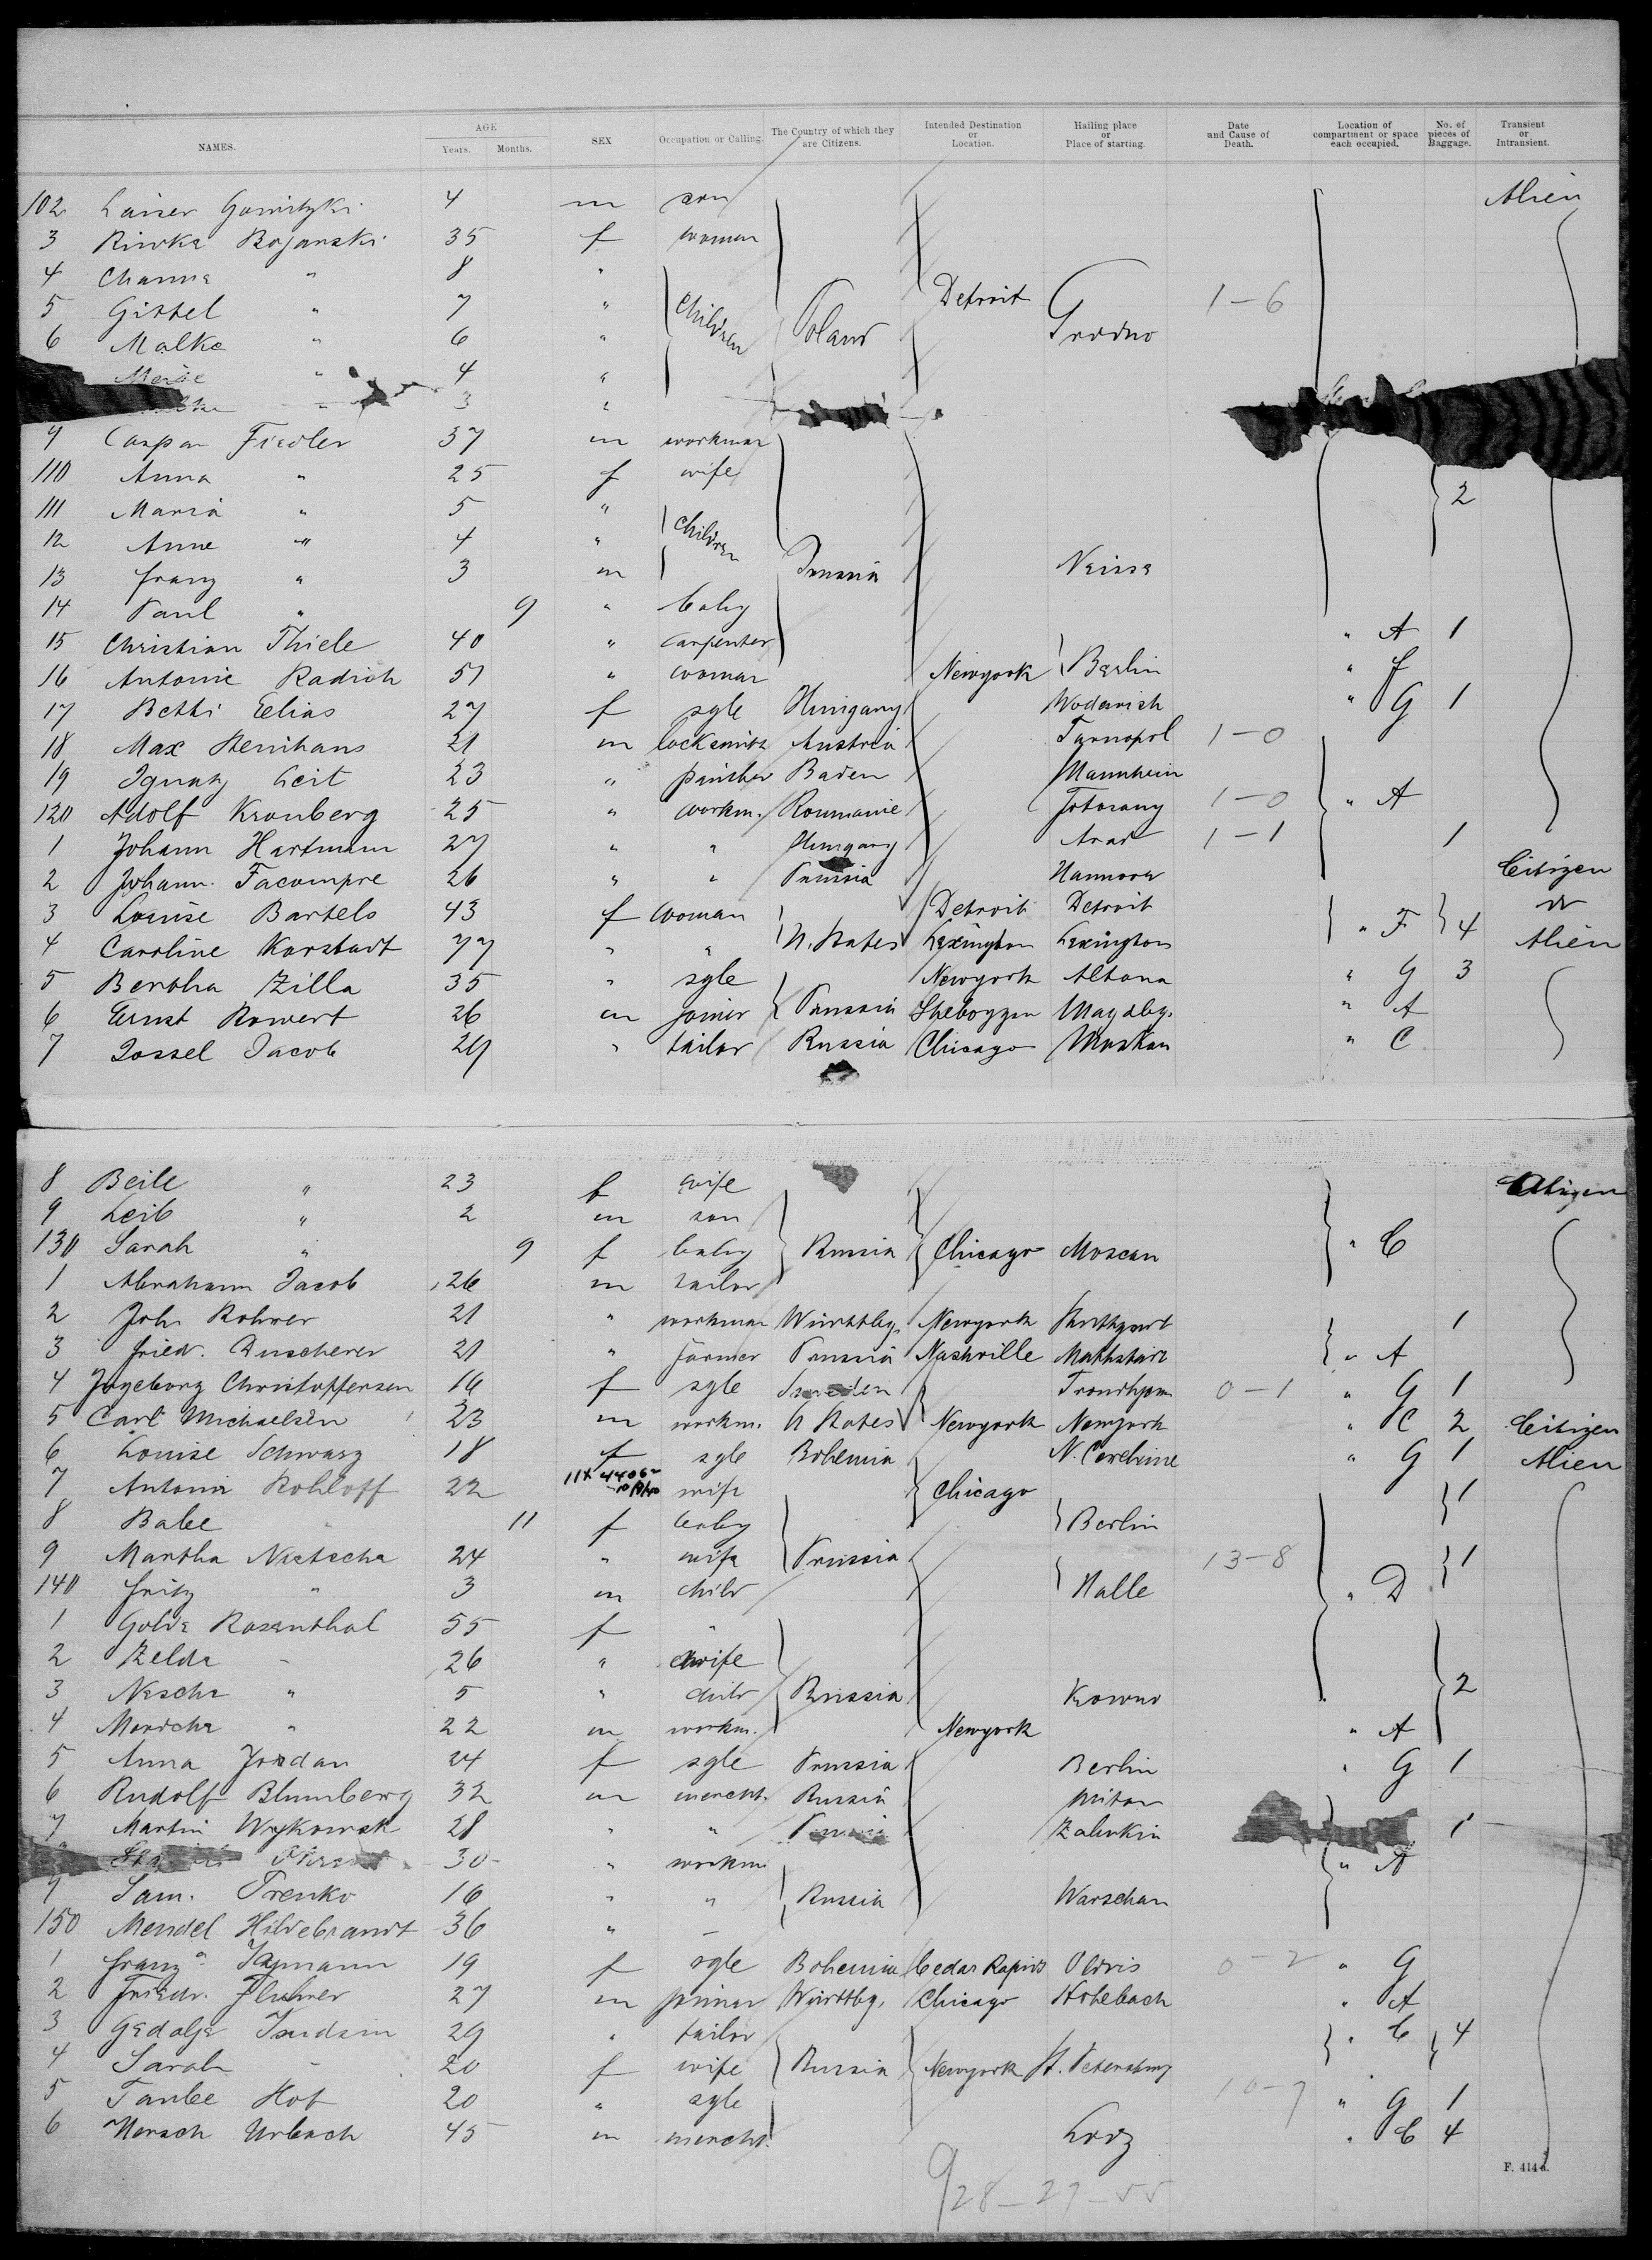 NAMES. AGE Years. Months. SEX Occupation or Calling. The Country of which they are Citizens. Intended Destination or Location. Hailing place or Place of starting. Date and Cause of Death. Location of compartment or space each occupied. No. of pieces of Baggage. Transient or Intransient.
102 4 m son Alien
3 Riwka Bojanski 35 f woman
4 Channa " 8 "
5 Gittel " 7 " Children Poland Detroit Grodno 1-6
6 Malke " 6 "
" 4 "
" 3 "
9 Caspar Fiedler 37 m workman
110 Anna " 25 f wife 2
111 Maria " 5 " Children
12 Anne " 4 "
13 Franz " 3 m Prussia Neisse
14 Paul " 9 " baby
15 Christian Thiele 40 " carpenter " A 1
16 Antonie Radioh 51 " woman Newyork Berlin " F
17 Betti Elias 27 f sgle Hungary " G 1
18 Max 21 m locksmith Austria Tarnopol 1-0
19 Ignatz Leit 23 " painter Baden Mannheim
120 Adolf Kronberg 25 " workm. Roumanie 1-0 " A
1 Johann Hartmann 27 " " Hungary Arad 1-1 1
2 Johann. Facompre 26 " " Prussia Hannover Citizen
3 Louise Bartels 43 f woman Detroit Detroit or
4 Caroline Karstadt 77 " " U. States Lexington Lexington " F 4 Alien
5 Bertha Zilla 35 " sgle Newyork Altona " G 3
6 Ernst Rowert 26 m joiner Prussia Sheboygan Magdbg. " A
7 Jossel Jacob 29 " tailor Russia Chicago Moskau " C
8 Beile " 23 f wife
9 Leib " 2 m son
130 Sarah " 9 f baby Russia Chicago Moscau " C
1 Abraham Jacob 26 m tailor
2 Joh. Rohrer 21 " workman Württbg. Newyork Stuttgart 1
3 Friedr. Duscherer 21 " farmer Prussia Nashville " A
4 Ingeborg Christoffersen 16 f sgle Sweden Trondhjem 0-1 " G 1
5 Carl Michaelsen 23 m workm. U States Newyork Newyork " C 2 Citizen
6 Louise Schwarz 18 f sgle Bohemia " G 1 Alien
7 Antonie Rohloff 22 wife Chicago 1
8 Babee " 11 f baby Berlin
9 Martha Nietsche 24 " wife Prussia 13-8 1
140 Fritz " 3 m child Halle " D
1 Golde Rosenthal 55 f "
2 Zelda " 26 " wife
3 Nesche " 5 " child Russia Kowno 2
4 Mordche " 22 m workm. Newyork " A
5 Anna Jordan 24 f sgle Prussia Berlin " G 1
6 Rudolf Blumberg 32 m mercht. Russia Mitau
7 Martin Wykowsk 28 " " 1
30 " workm " A
9 Sam. Trenko 16 " " Russia Warschau
150 Mendel Hildebrandt 36 "
1 19 f sgle Bohemia Cedar Rapids Oldris 0-2 " G
2 Friedr. Fluhrer 27 m joiner Württbg. Chicago Hohebach " A
3 Gedalje Isudsin 29 " tailor " C 4
4 Sarah " 20 f wife Russia Newyork St. Petersburg
5 Taube Hot 20 " sgle 10-7 " G 1
6 Hersch Urbach 45 m mercht. Lodz " C 4
928-27-55